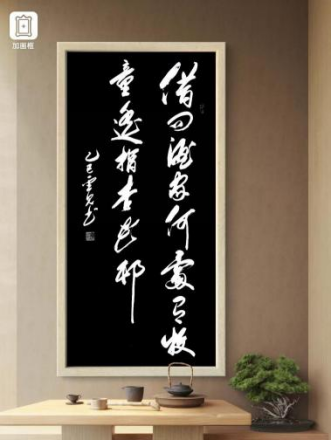 加画框
借问酒家何處有牧
童遥指杏花邨
乙巳